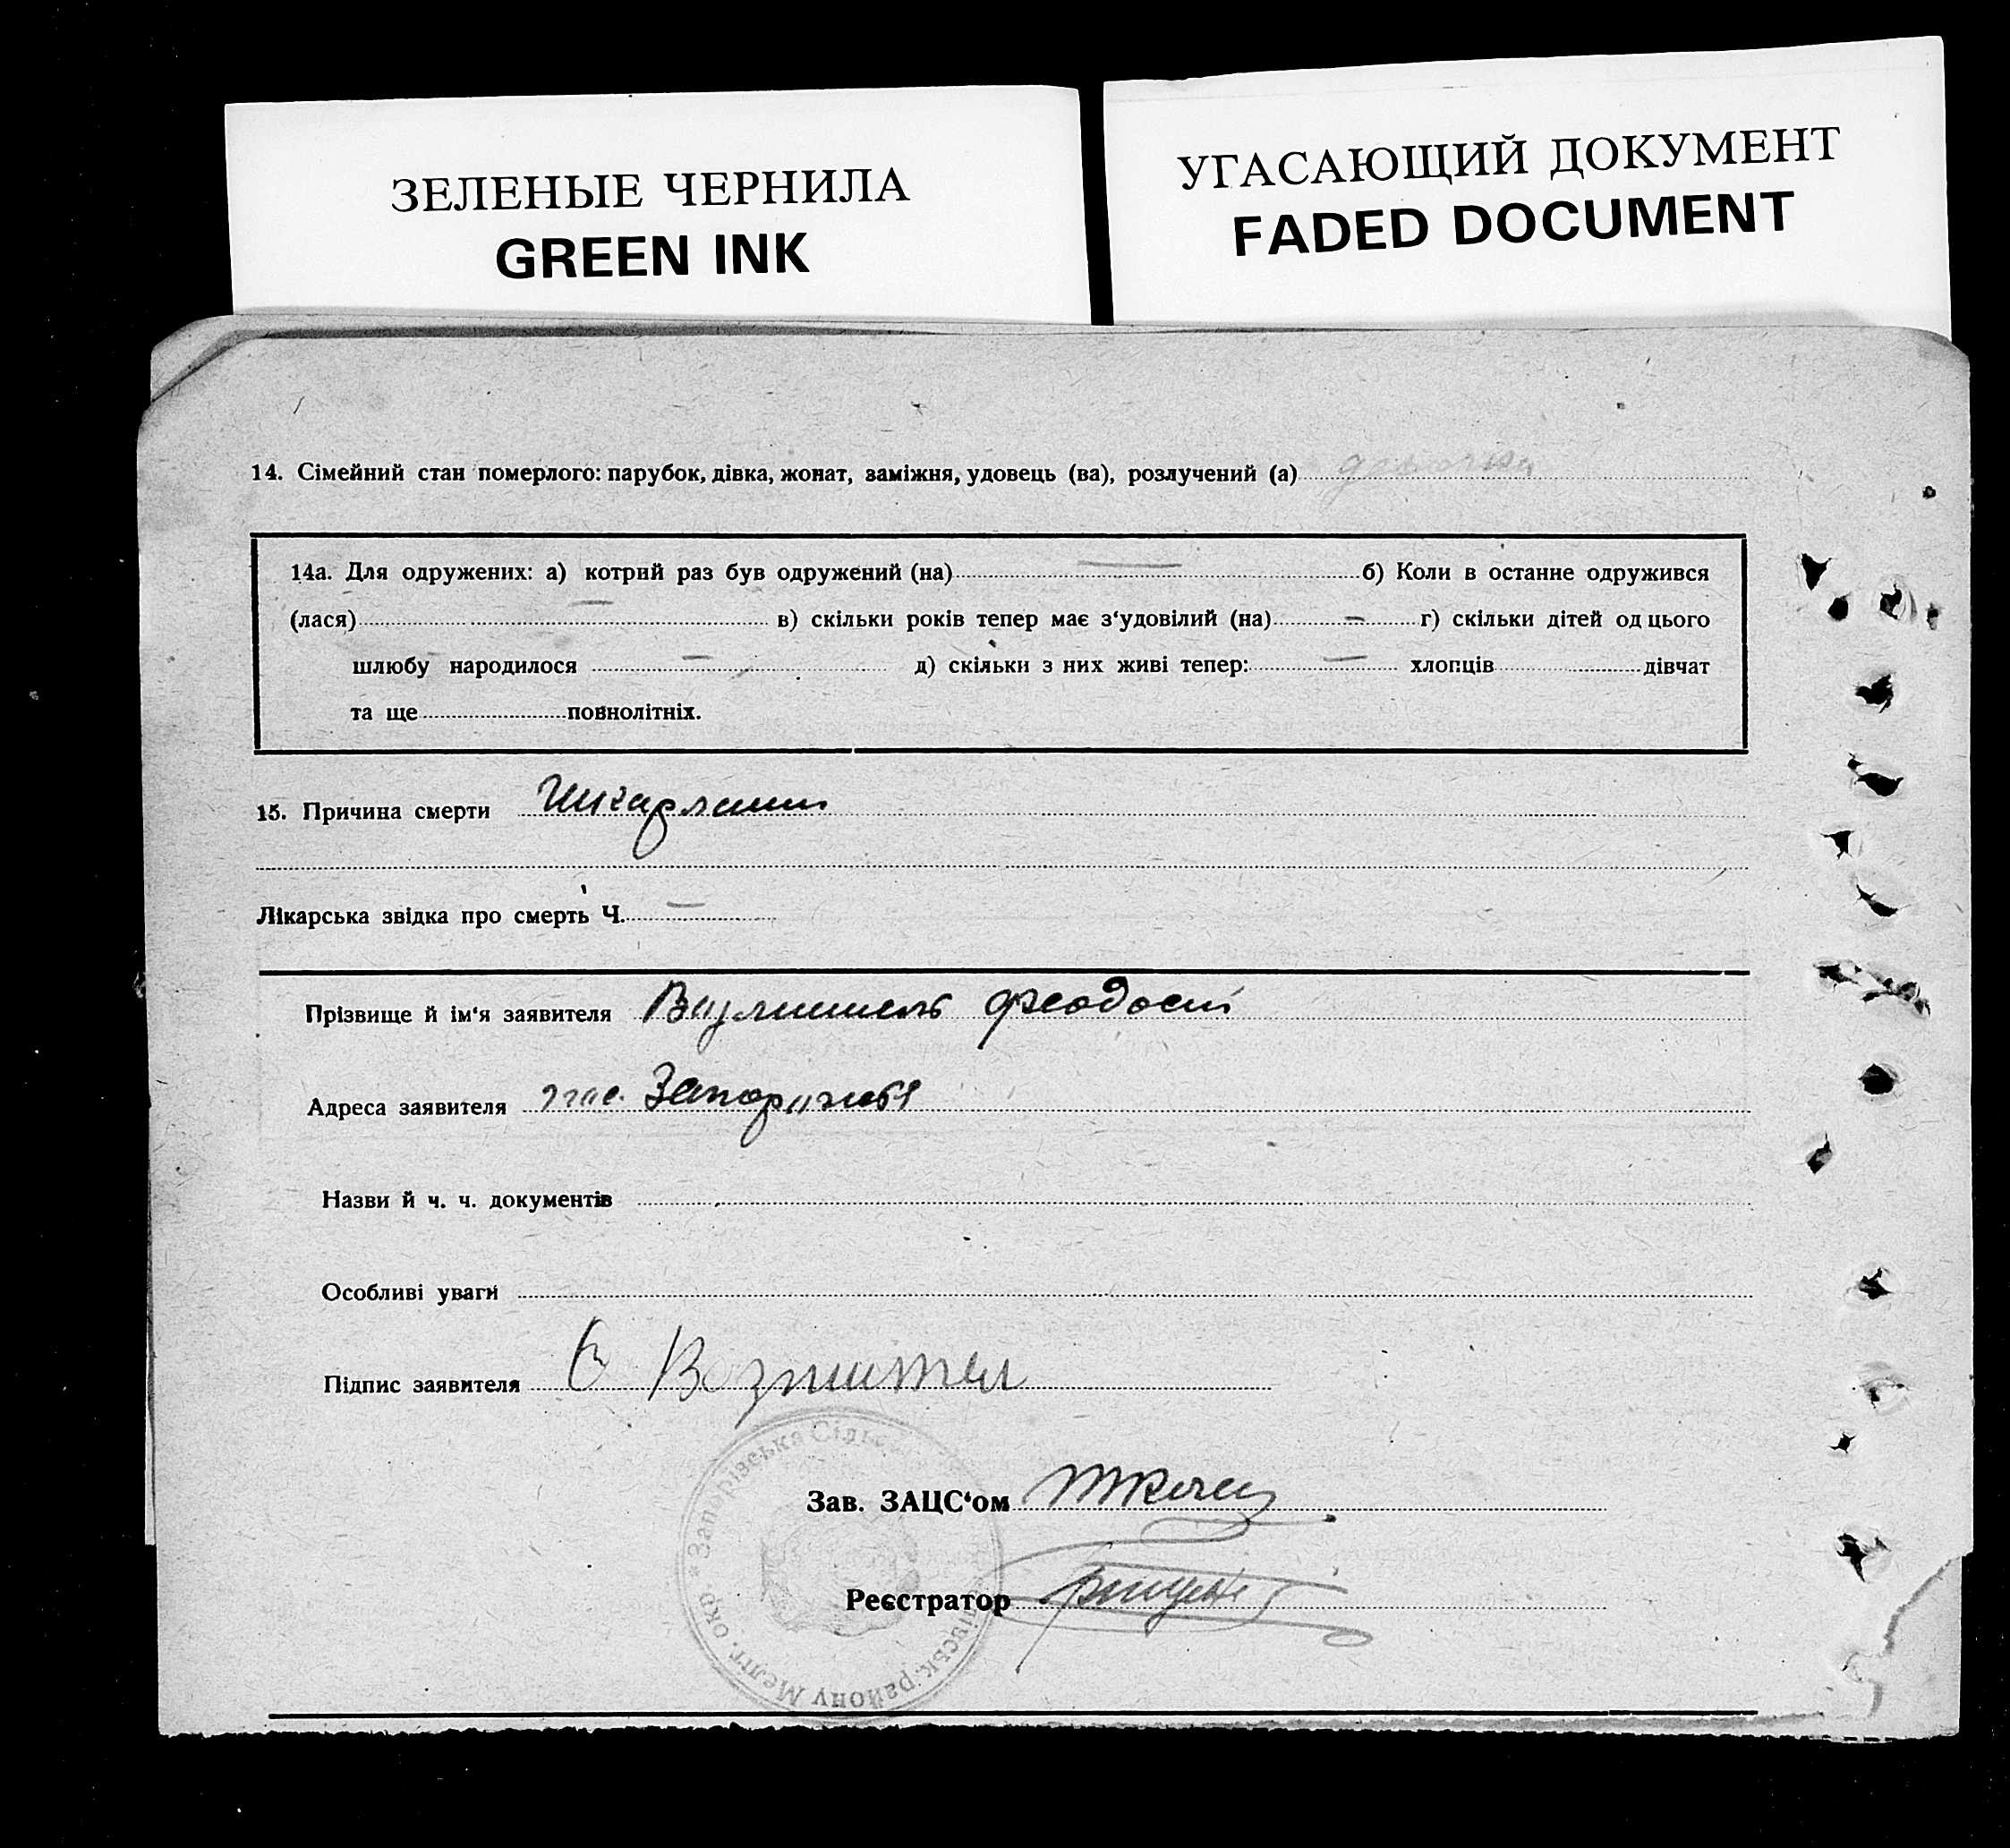 ЗЕЛЕНЫЕ ЧЕРНИЛА
GREEN INK
УГАСАЮЩИЙ ДОКУМЕНТ
FADED DOCUMENT
14. Сімейний стан померлого: парубок, дівка, жонат, заміжня, удовець (ва), розлучений (а)
14а. Для одружених: а) котрий раз був одружений (на) — б) Коли в останне одружився
(лася) — в) скільки років тепер має з‘удовілий (на) — г) скільки дітей од цього
шлюбу народилося — д) скільки з них живі тепер: — хлопців дівчат
та ще повнолітніх.
15. Причина смерти
Лікарська звідка про смерть Ч. —
Прізвище й ім‘я заявителя Феодосій
Адреса заявителя
Назви й ч. ч. документів
Особливі уваги
Підпис заявителя
Зав. ЗАЦС‘ом
Реєстратор
Запорізька району Меліт. окр. *